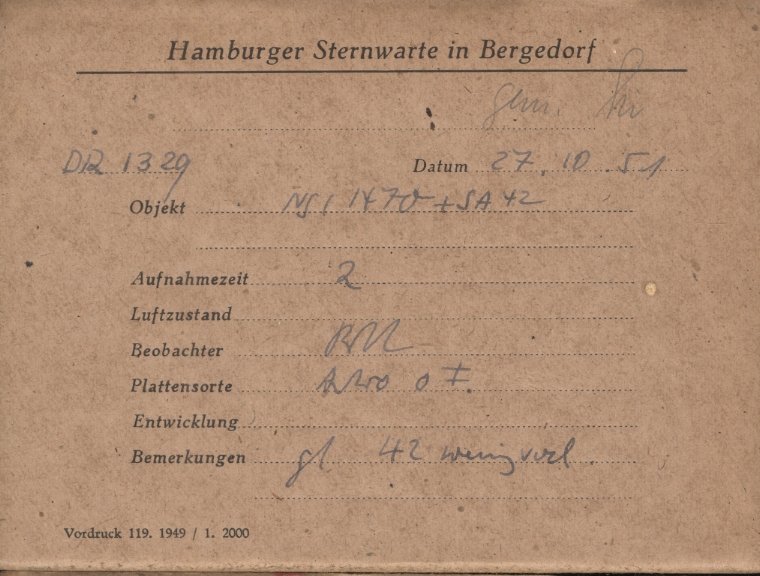 Hamburger Sternwarte in Bergedorf
gem.
DR 1329 Datum 27.10.51
Objekt + SA 42
Aufnahmezeit 2
Luftzustand
Beobachter
Plattensorte
Entwicklung
Bemerkungen gl 42
Vordruck 119. 1949 / 1. 2000